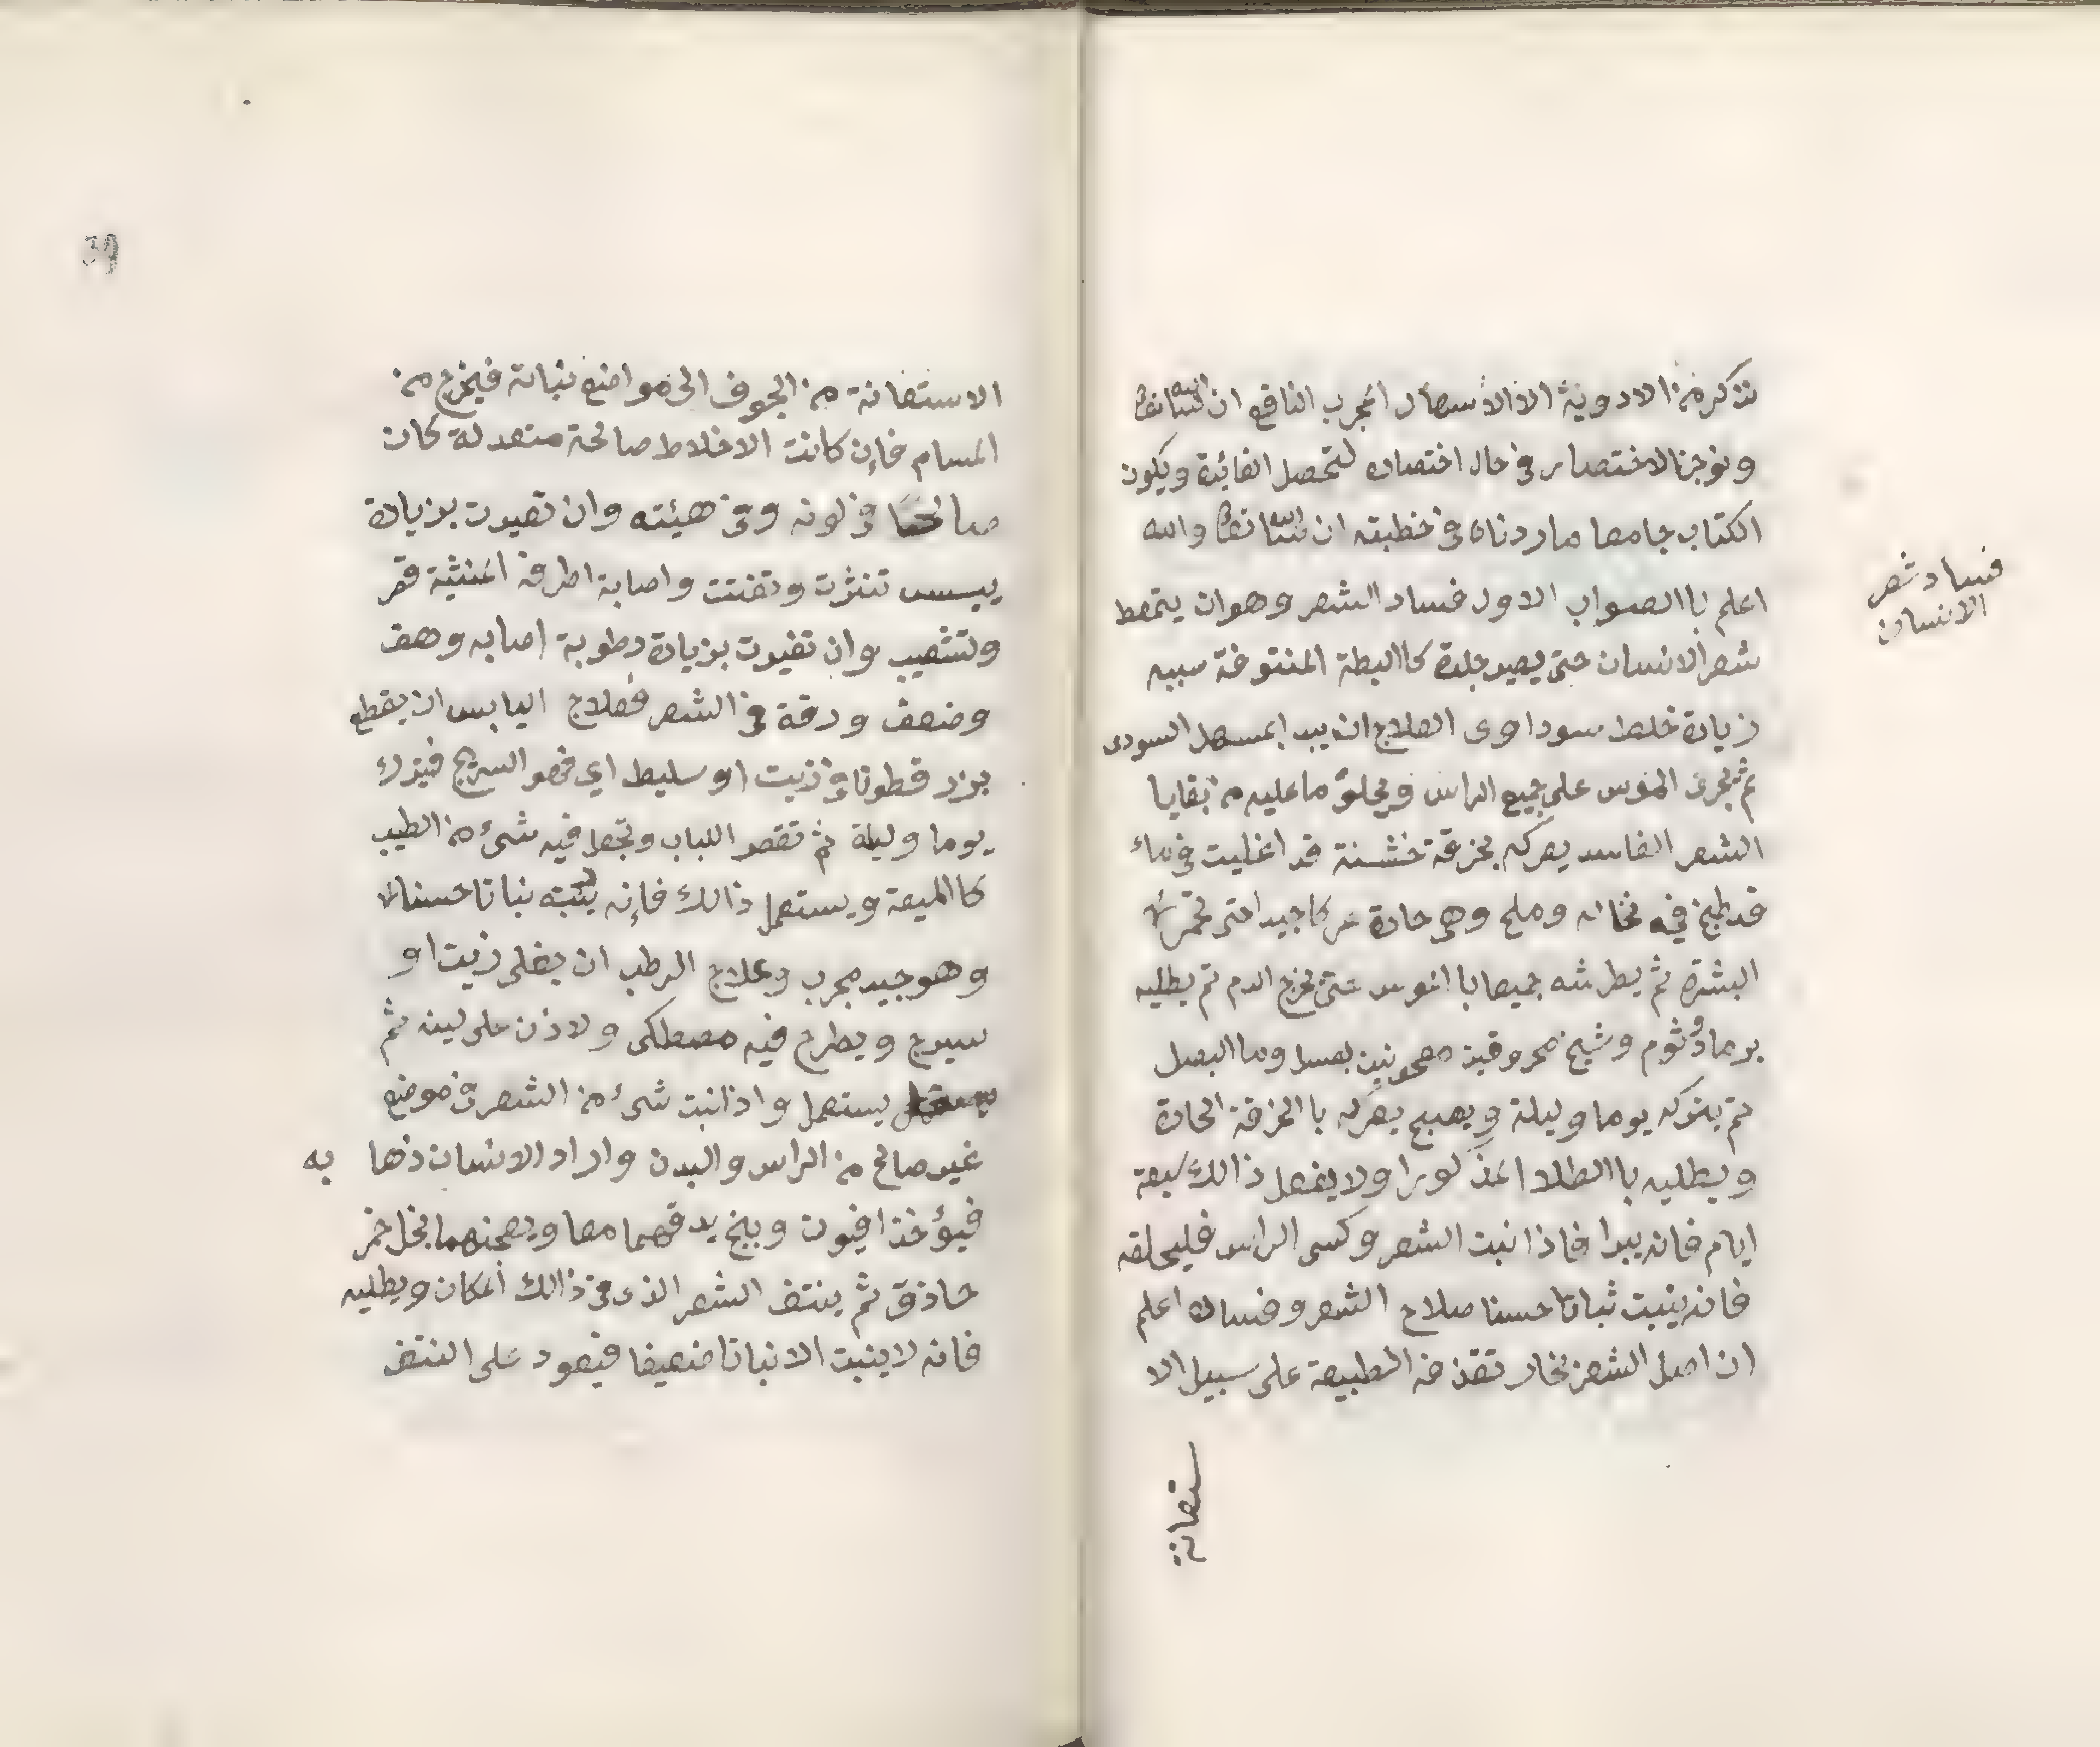 نذكر من الادوية الا الاسهال المجرب النافع ان شاء الله تعالى
ونوجز الاختصار في حال اختصاره لتحصل الفائدة ويكون
الكتاب جامعا ماردناه في خطبته ان شاء الله تعالى والله
اعلم باالصواب الاول فساد الشعر وهو ان يتمعط
شعر الانسان حتى يصير جلدة كاالبطة المنتوفة سببه
زيادة خلط سوداوى العلاج ان يبدا بمسهل السودى
ثم يجرى الموس على جميع الراس ويحلق ما عليه من بقايا
الشعر الفاسد يعركه بخرقة خشنة قد اغليت في ماء
قد طبخ فيه نخاله وملح وهى حادة عركا جيدا حتى تحمر
البشرة ثم يطرشه جميعا باالموس حتى يخرج الدم ثم يطليه
برماد ثوم وشيح محروقين معجونين بعسل وما البصل
ثم يتركه يوما وليلة ويصبح يعركه باالخرقة الحادة
ويطليه باالطلا المذكور اولا يفعل ذالك سبعة
ايام فانه يبرا فاذا نبت الشعر وكسى الراس فليحلقه
فانه ينبت نباتا حسنا صلاح الشعر وفساده اعلم
ان اصل الشعر بخار تقذفه الطبيعة على سبيل الا
ستعانة
فساد شعر
الانسان
39
الاستعانة من الجوف الى مواضع نباتة فيخرج من
المسام فإن كانت الاخلاط صالحة متعدلة كان
صالحا في لونه وفي هيئته وان تغيرت بزيادة
يبسس تنثرت وتفتت واصابة اطرفه
وتشعيب وان تغيرت بزيادة رطوبة اصابه وهف
وضعف ورقة في الشعر فعلاج اليابس ان يقطع
بزر قطونا في زيت او سليط اي السيرج فيترك
يوما وليلة ثم تعصر اللباب وتجعل فيه شىء من الطيب
كاالميعة ويستعمل ذالك فإنه ينبته نباتا حسنا
وهو جيد مجرب وعلاج الرطب ان يغلى زيت او
سيرج ويطرح فيه مصطكى ولاذن على لينه ثم
يستعمل واذا نبت شىء من الشعر في موضع
غير صالح من الراس والبدن واراد الانسان ذها به
فيؤخذ افيون وبنج يدقهما معا ويعجنهما بخل خمر
حاذق ثم ينتف الشعر الذى في ذالك المكان ويطليه
فانه لا ينبت الا نباتا ضعيفا فيعود على النتف